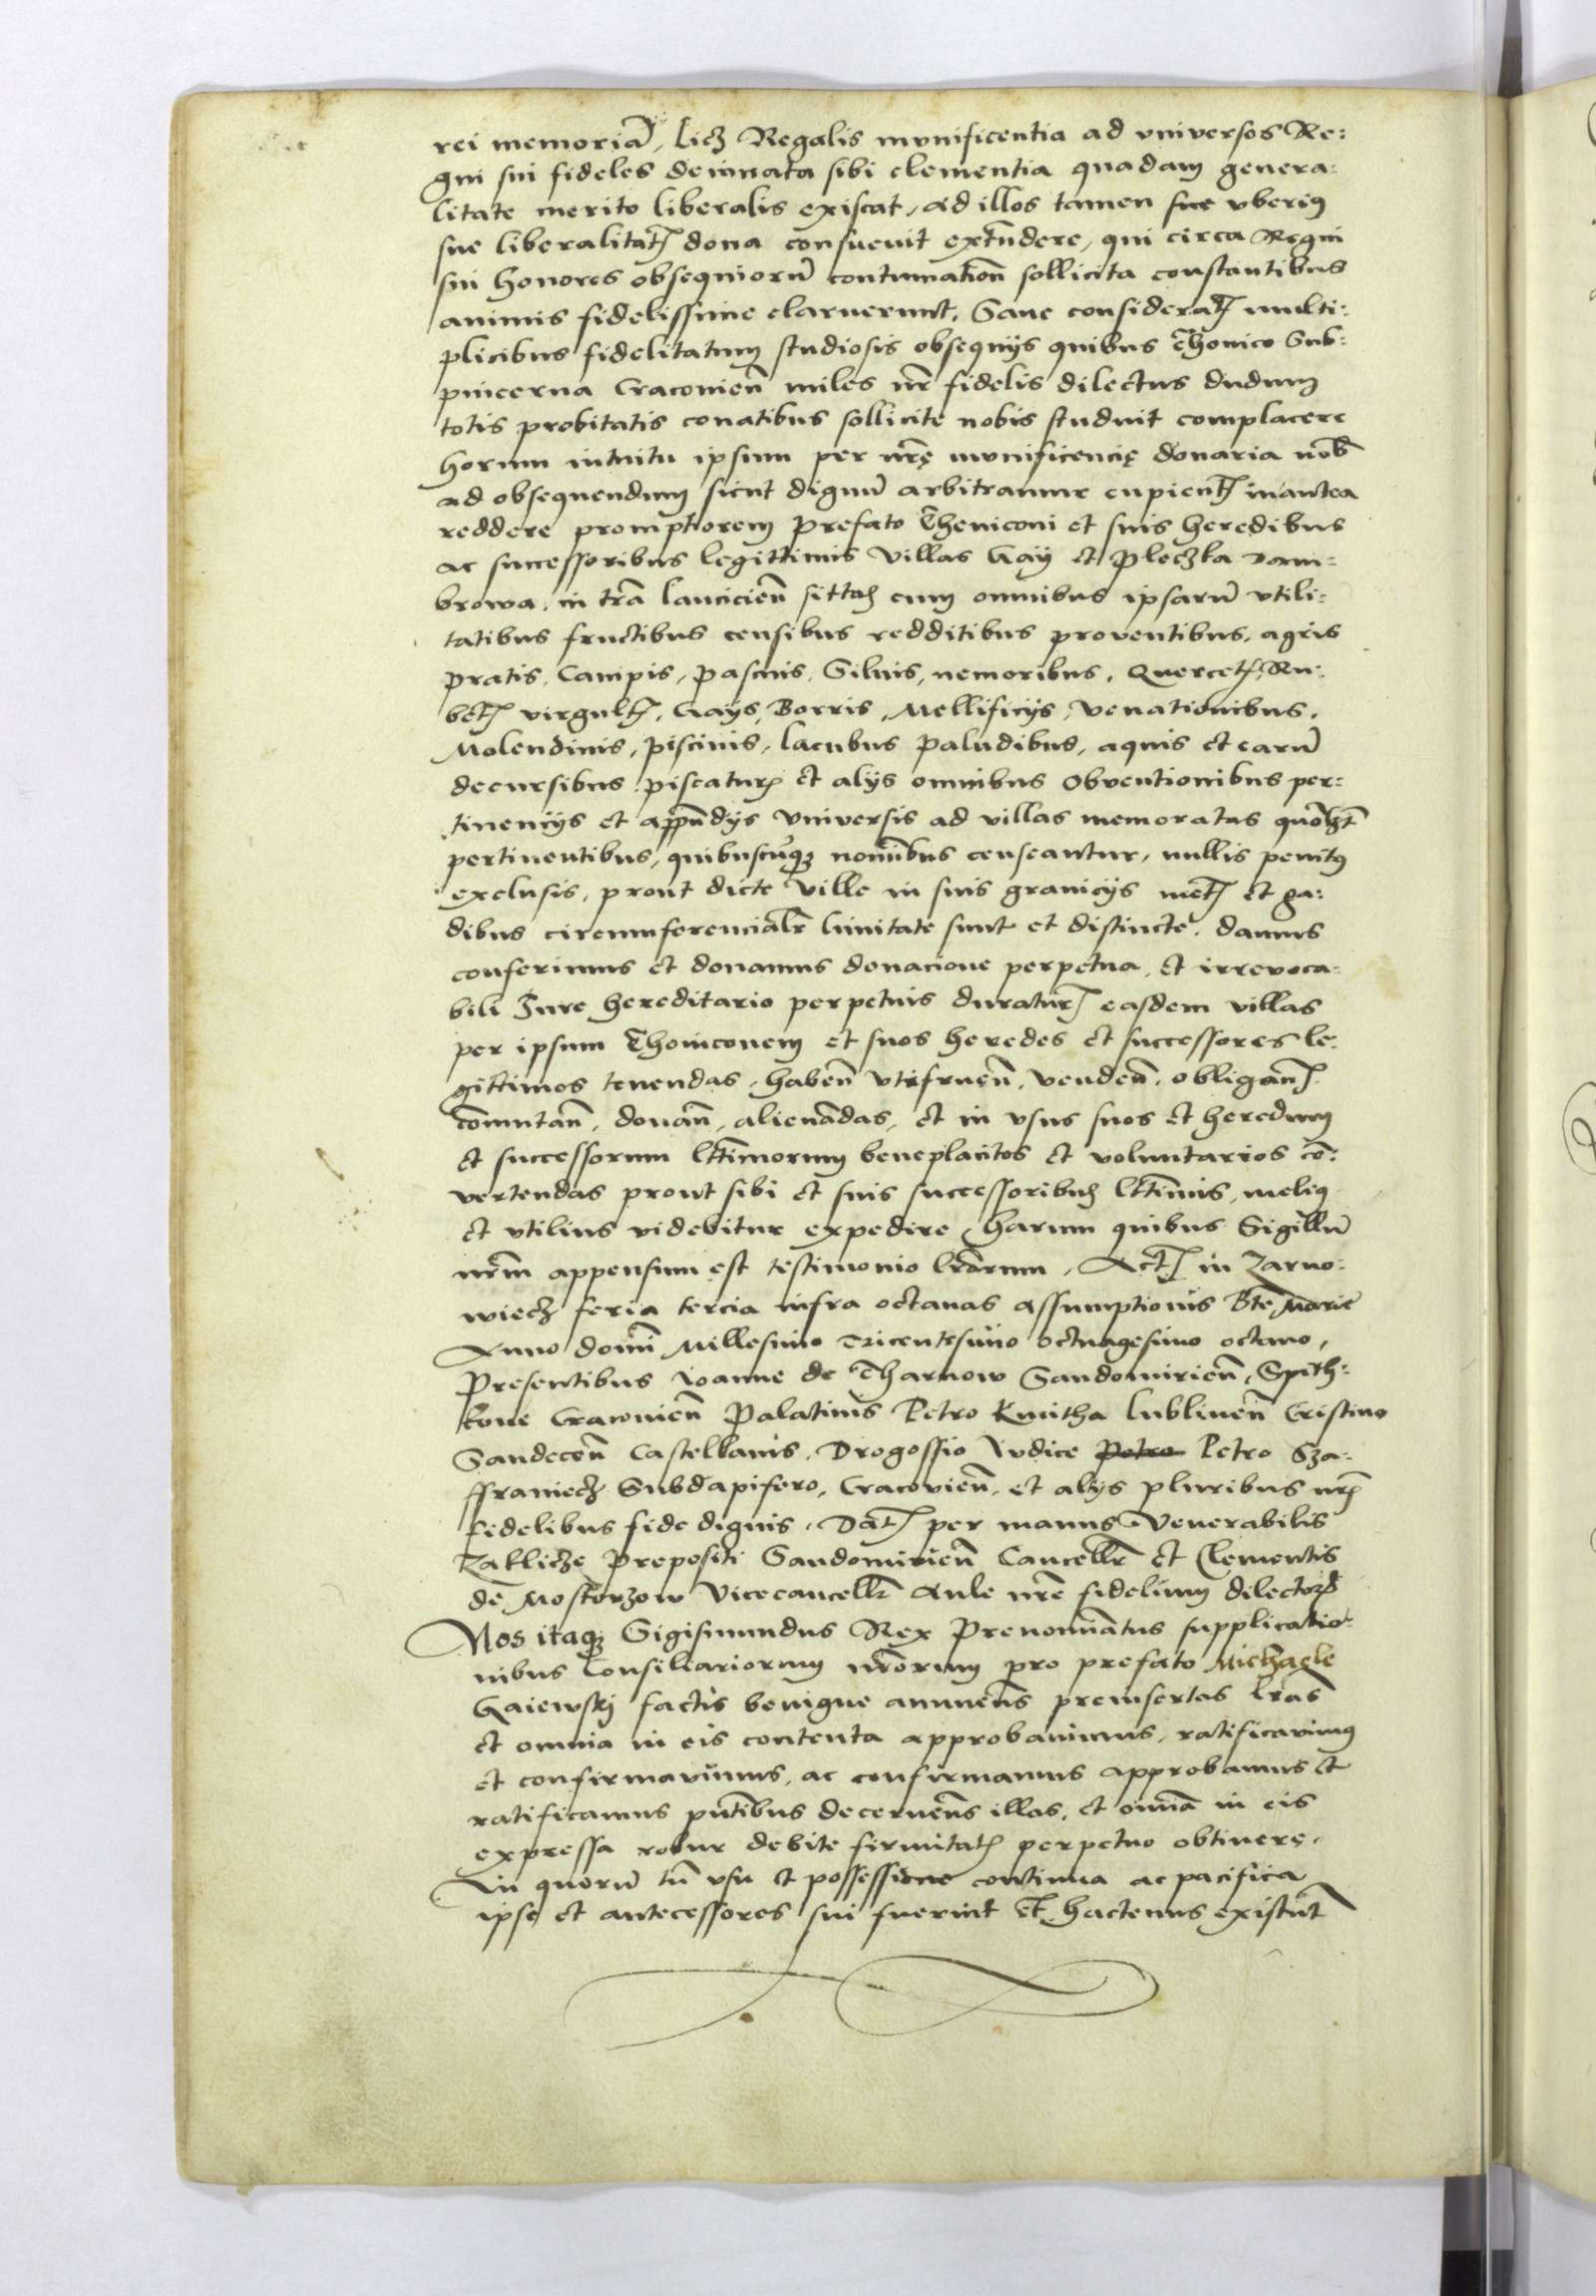 rei memoriā, Licz Regalis mvnificentia ad vniversos Re:
gni sui fideles de innata sibi clementia quadam genera:
litate merito liberalis existat, ad illos tamen sue vberiꝰ
sue liberalitatꝭ dona consuevit extēndere, qui circa Regni
sui honores obsequiorū continuationē sollicita constantibus
animis fidelissime claruerunt, Sane consideratꝭ multi:
plicibus fidelitatum studiosis obsequijs quibus Thonico Sub:
pincerna Cracovieñ miles nr̄ fidelis dilectus dudum
totis probitatis conatibus sollicite nobis studuit complacere
horum intuitu ipsum per nr̄ę mvnificencię donaria nob̄
ad obsequendum sicut dignū arbitramur cupientꝭ inantea
reddere promptiorem prefato Theniconi et suis heredibus
ac successoribus legittimis villas Gay et Pleczka dam:
browa, in tr̄a lancicieñ sittas cum omnibus ipsarū vtili:
tatibus fructibus censibus redditibus proventibus, agris
pratis, Campis, pascuis, Siluis, nemoribus, Quercetꝭ, Ru:
betꝭ virgultꝭ, Gays, Borris, Mellificijs, venationibus,
Molendinis, piscinis, lacubus paludibus, aquis et earū
decursibus piscaturꝭ et alijs omnibus obventionibus per:
tinencijs et appēndijs vniversis ad villas memoratas quōlȝt
pertinentibus, quibuscūqȝ nomībus censeantur, nullis penitꝰ
exclusis, prout dicte ville in suis granicijs metꝭ et ga:
dibus circumferencialr̄ limitate sunt et distincte, damus
conferimus et donamus donacione perpetua, et irrevoca:
bili Jure hereditario perpetuis duraturꝭ easdem villas
per ipsum Thoniconem et suos heredes et successores le:
gittimos tenendas, habeñ vtifrueñ, vendeñ, obligantꝭ
cōmutañ, donañ, alienādas, et in vsus suos et heredum
et successorum ltt̄imorum beneplacitos et voluntarios cō:
vertendas prout sibi et suis successoribus ltt̄imis, meliꝰ
et vtilius videbitur expedire, harum quibus Sigillū
nr̄m appensum est testimonio lr̄arum, Actꝭ in Zarno:
wiecz feria tercia infra octauas assumptionis Bte Marie
Anno domī Millesimo Tricentesimo octuagesimo octavo,
Presentibus Joanne de Tharnow Sandomirieñ, Spith:
kone Cracovieñ Palatinis Petro Kmitha lublineñ Cristino
Sandeceñ Castellanis, Drogossio Judice Petro Petro Sza:
ffraniecz Subdapifero, Cracovieñ, et alijs pluribus nr̄ꝭ
fidelibus fide dignis, Datꝭ per manus Venerabilis
Zaklicze Prepositi Sandomirieñ Cancellr̄ et Clementis
de Moskorzow Vicecancellr̄ Aule nr̄e fidelium dilectorꝭ
Nos itaqȝ Sigismundus Rex Prenomīatus supplicatio:
nibus Consiliariorum nr̄orum pro prefato Michaele
Gaiewskj factis benigne annueñs preinsertas lr̄as
et omnia in eis contenta approbavimus, ratificavimꝰ
et confirmavimus, ac confirmamus approbamus et
ratificamus pn̄tibus decerneñs illas, et oīmā in eis
expressa robur debite firmitatꝭ perpetuo obtinere,
In quorū tn̄ vsu et possessione continua ac pacifica
ipse et antecessores sui fuerint et hactenus existūt